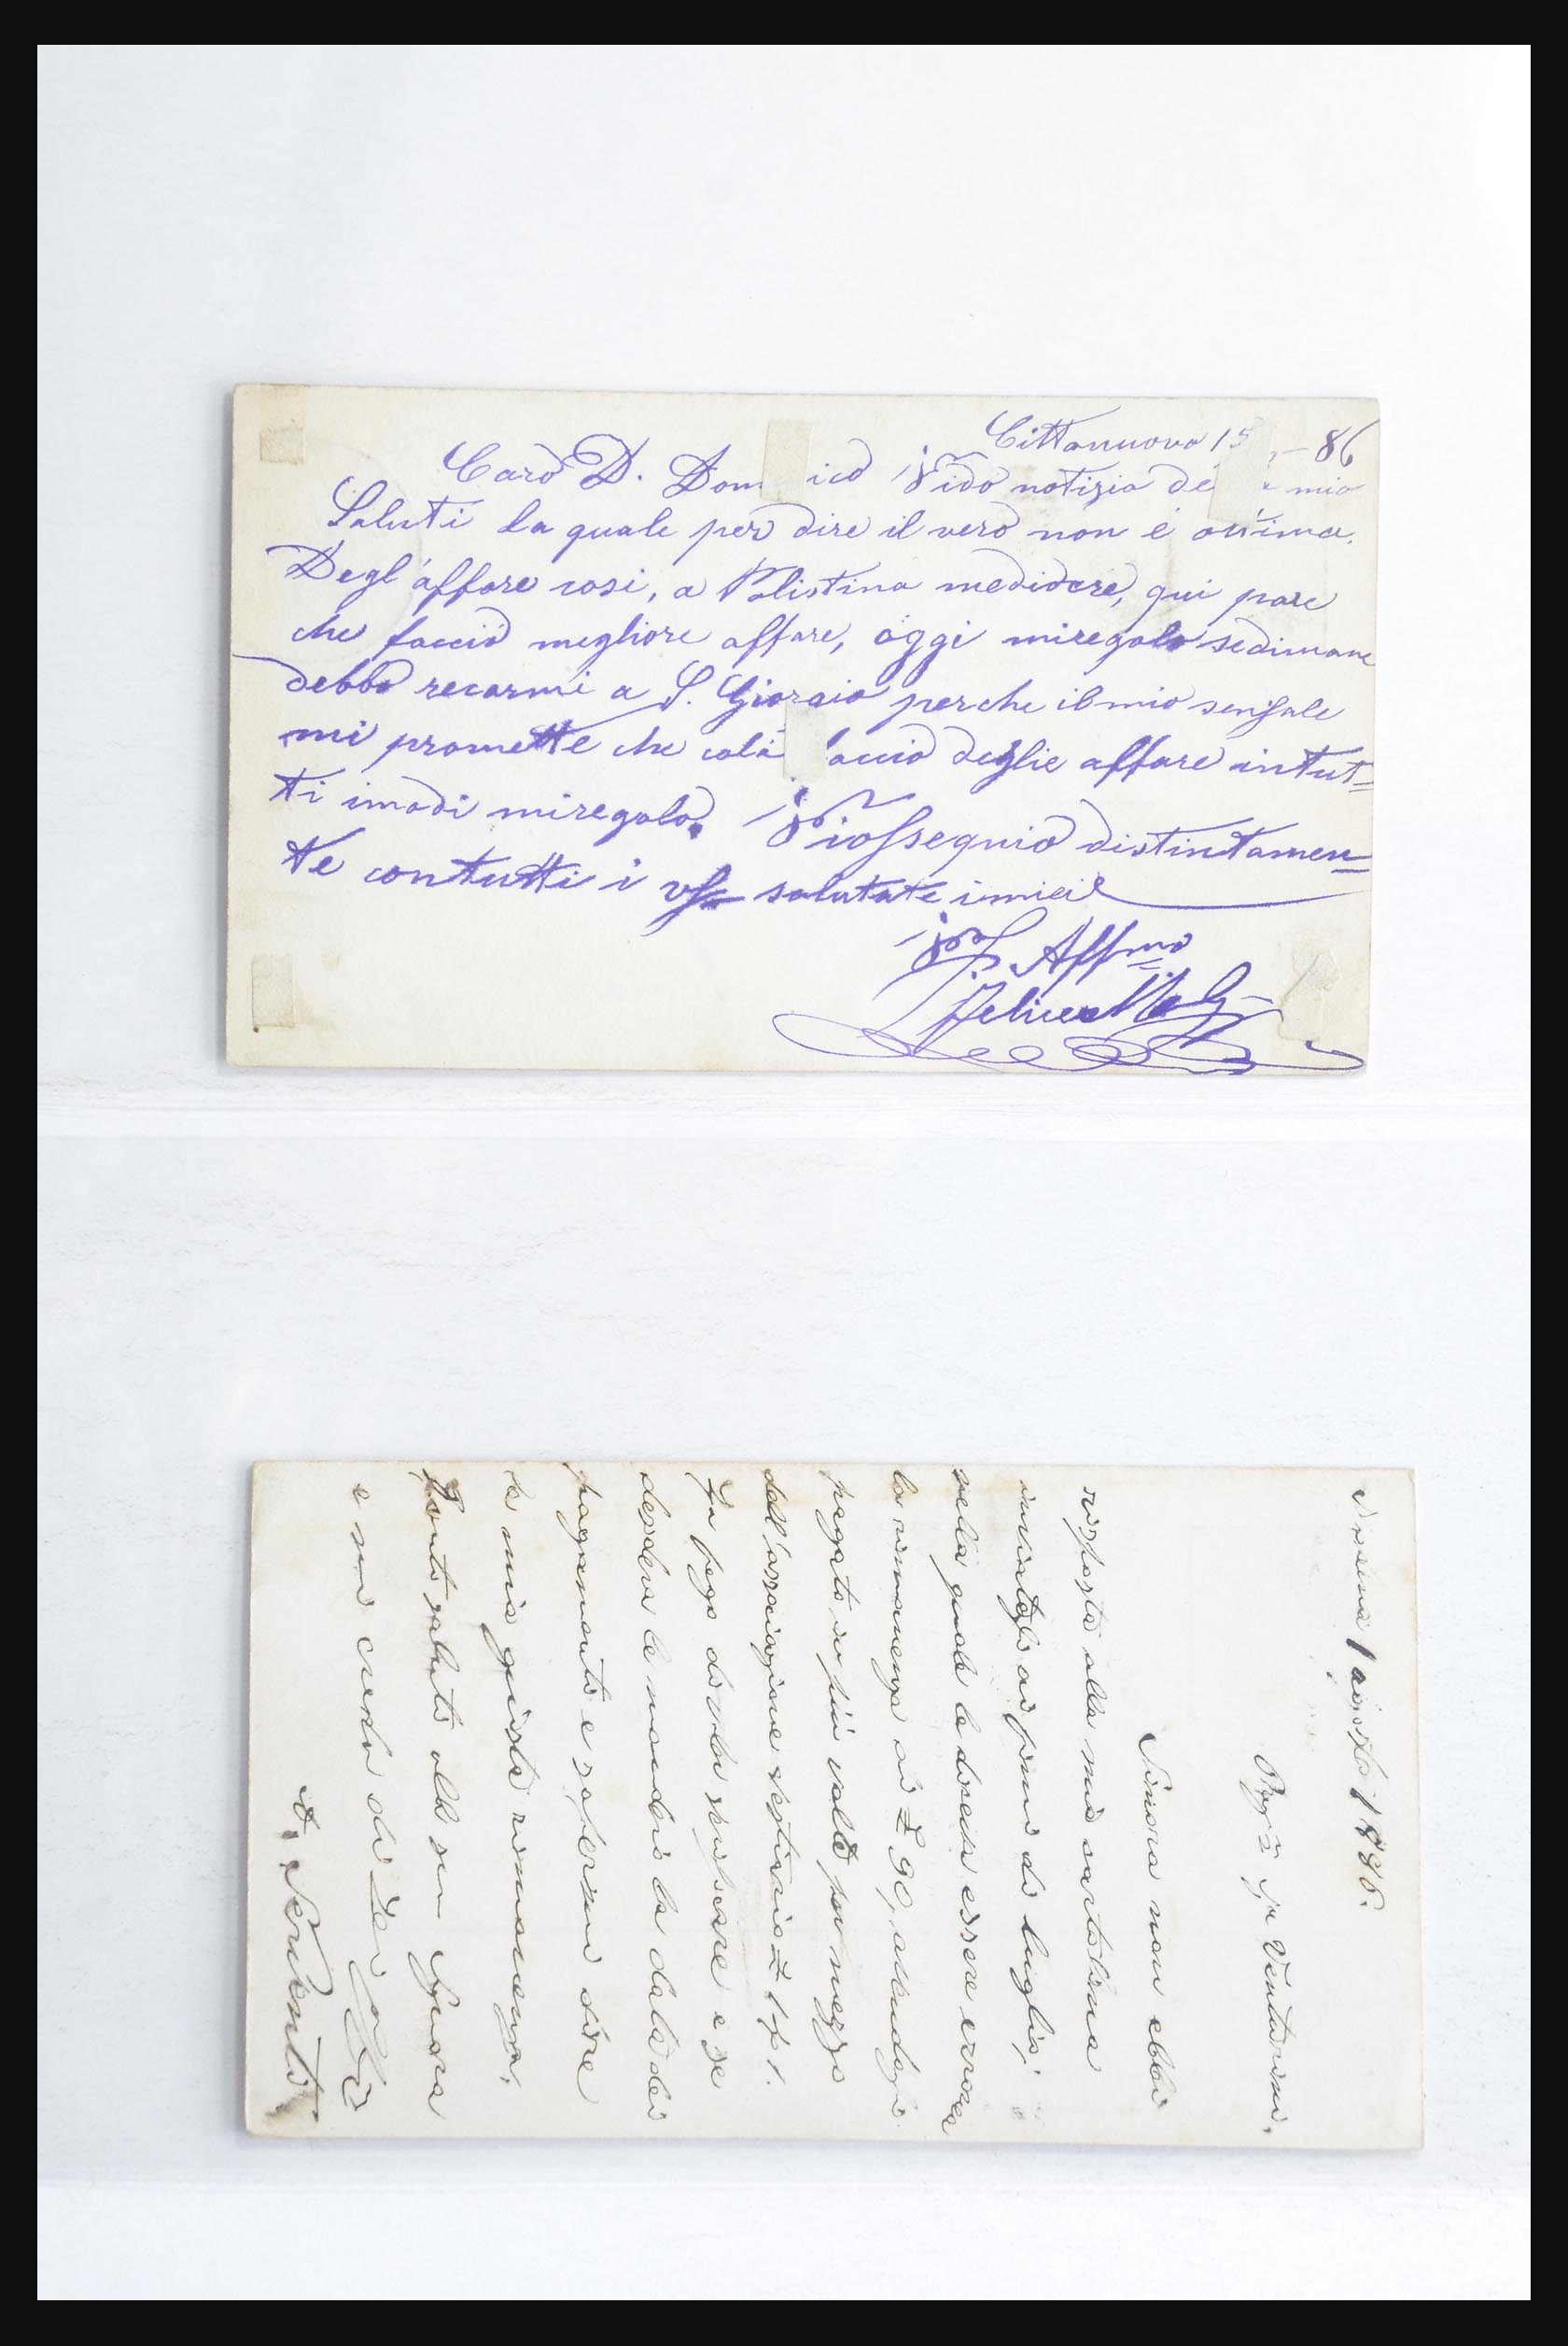 Cittanuova 15 - 86
Caro D. Dom ico Vi do notizia de mio
Saluti la quale per dire il vero non é ottima.
Degl'affare cosi, a Polistina medidcre, qui pare
che faccio megliore affare, oggi miregolo sedimane
debbo recarmi a S. Giorgio perche il mio sensale
mi promette che colà accio deglie affare intut=
ti imodi miregolo. Viossequio distintamen=
te contutti i salutate imiei
Affmo
Felice
1 agosto 1886.
Sr Venturini,
Sinora non ebbi
risposta alla mia cartolina
inviatagli ai primi di luglio;
nella quale la doveva essere
la rimanenza di £ 90,
pagato in più volte per mezzo
dell'associazione £ 14 1.
La prego di voler e se
desidera le mandi la data dei
pagamenti e sapermi dire
la mia giusta rimanenza,
Tanti saluti alla sua Signora
e mi creda di Lei